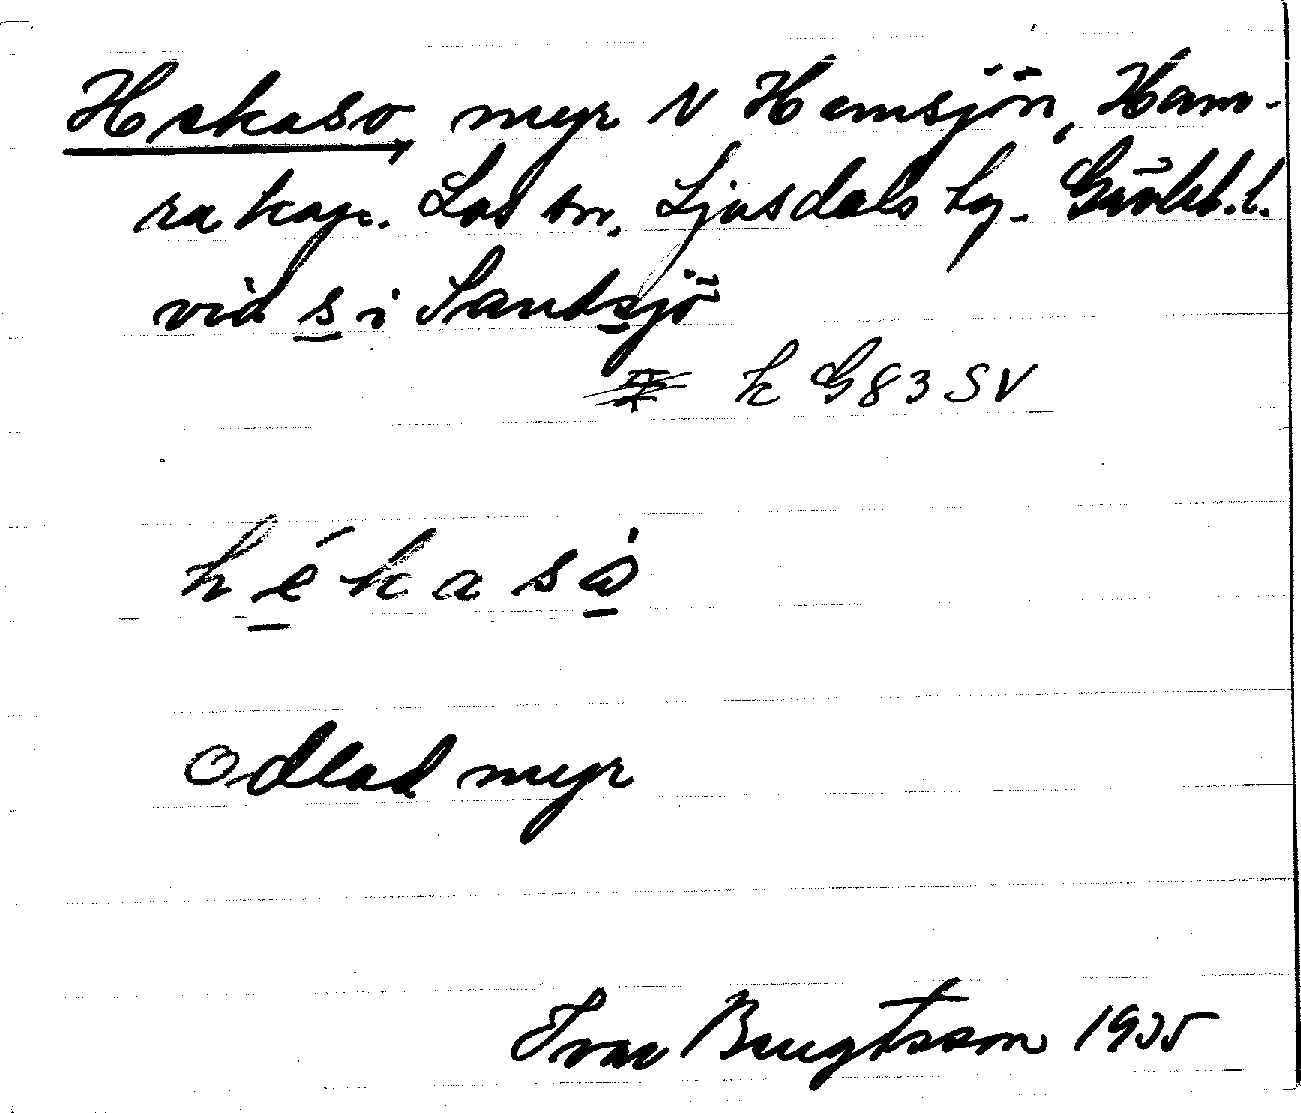 Hekaso, myr N Hemsjön, Ham-
ra kap. Los sn. Ljusdals tg. Gävleb. l.
vid s i Sandsjö
k G83SV
hékaså
Odlad myr
Ivar Bengtsson 1935